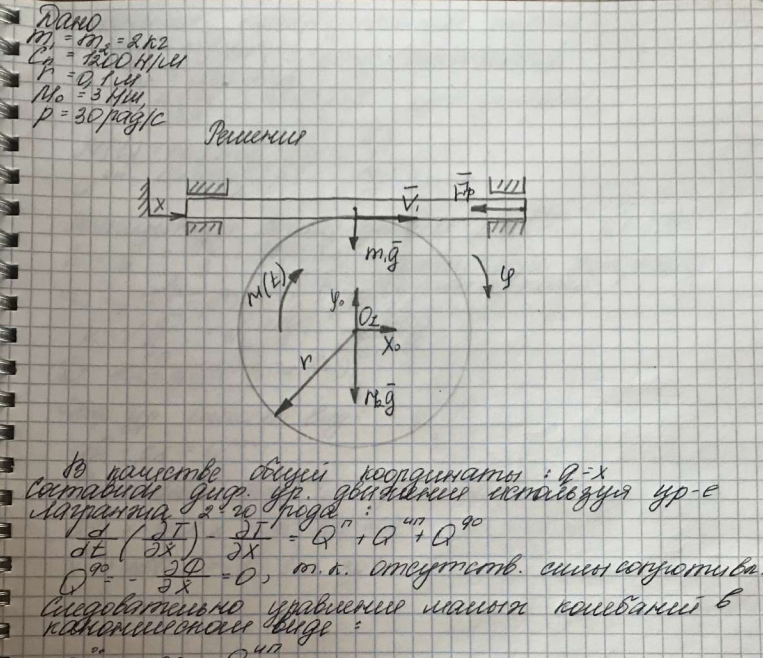 Дано
m₁ = m₂ = 2 кг
Cп = 1200 Н/м
r = 0,1 м
M₀ = 3 Нм
p = 30 рад/с
Решение
x
V̄₁
F̄пр
m₁ḡ
M(t)
φ
y₀
O₂
x₀
r
m₂ḡ
В качестве общей координаты: q=x
Составим диф. ур. движения используя ур-е
Лагранжа 2-го рода:
d/dt (∂T/∂ẋ) - ∂T/∂x = Qᴨ + Qᵘᴨ + Qᵍᵒ
Qᵍᵒ = - ∂Ф/∂ẋ = 0, т.к. отсутств. силы сопротивл.
Следовательно уравнение малых колебаний в
каноническом виде: